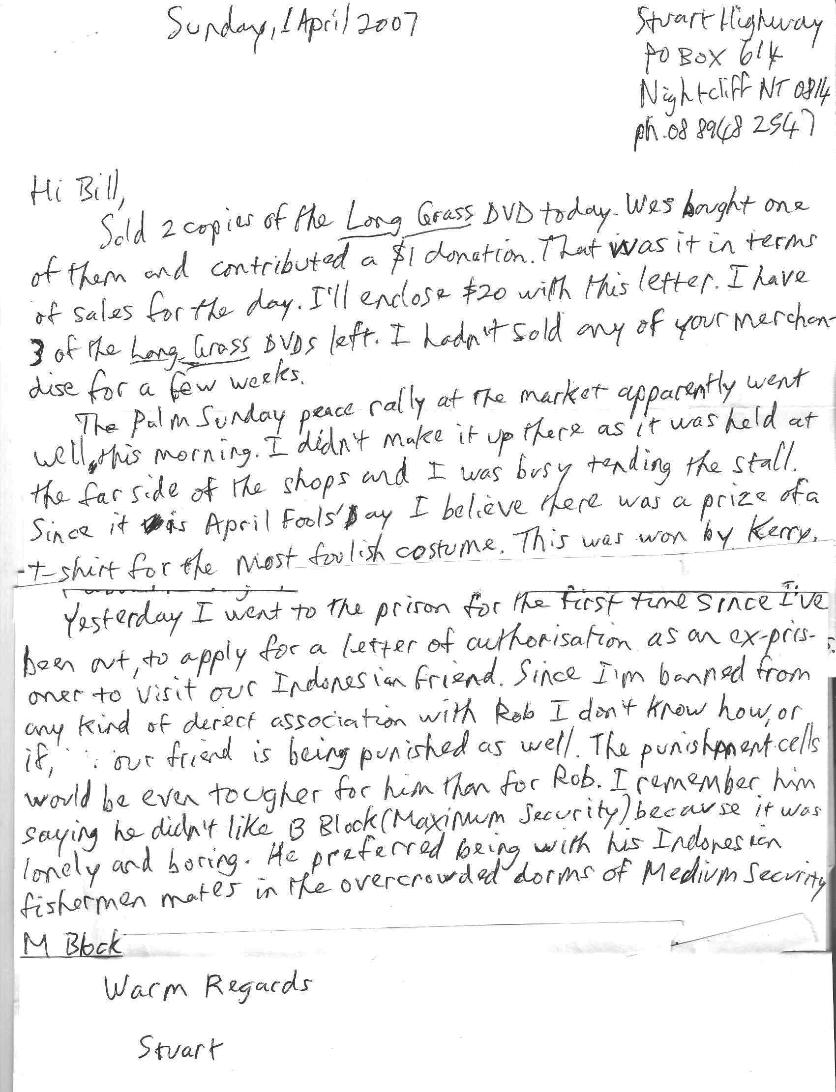 Sunday, 1 April 2007
Stuart Highway
PO BOX 614
Nightcliff NT 0814
ph. 08 8948 2547
Hi Bill,
Sold 2 copies of the Long Grass DVD today. Wes bought one
of them and contributed a $1 donation. That was it in terms
of sales for the day. I'll enclose $20 with this letter. I have
3 of the Long Grass DVDs left. I hadn't sold any of your merchan-
dise for a few weeks.
The Palm Sunday peace rally at the market apparently went
well, this morning. I didn't make it up there as it was held at
the far side of the shops and I was busy tending the stall.
Since it is April Fools' Day I believe there was a prize of a
t-shirt for the most foolish costume. This was won by Kerry.
Yesterday I went to the prison for the first time since I've
been out, to apply for a letter of authorisation as an ex-pris-
oner to visit our Indonesian friend. Since I'm banned from
any kind of derect association with Rob I don't know how, or
if, our friend is being punished as well. The punishment cells
would be even tougher for him than for Rob. I remember him
saying he didn't like B Block (Maximum Security) because it was
lonely and boring. He preferred being with his Indonesian
fishermen mates in the overcrowded dorms of Medium Security
M Block
Warm Regards
Stuart